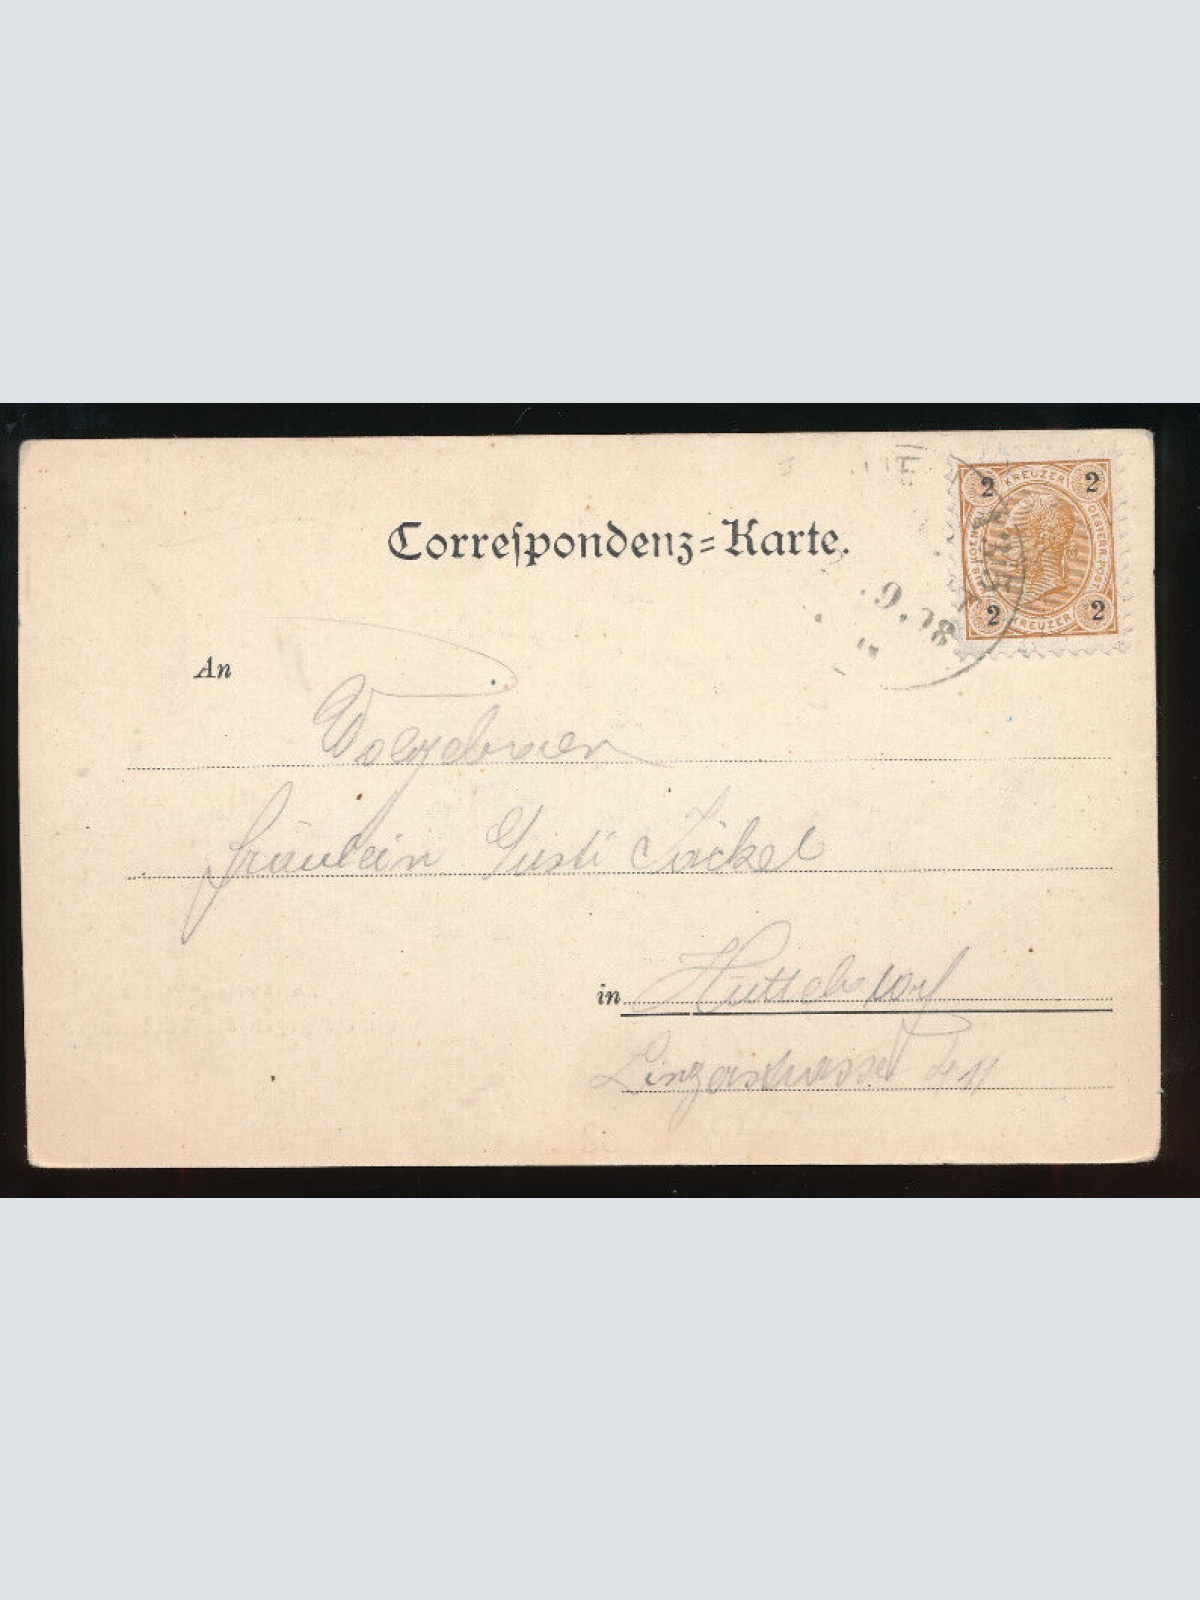 Correspondenz=Karte.
2 KREUZER 2
KAIS. KOEN. OESTERR. POST
2 KREUZER 2
9. 98
An
Wolgeboren
Fräulein Gusti Jäckel
in Hütteldorf
Linzerstrasse